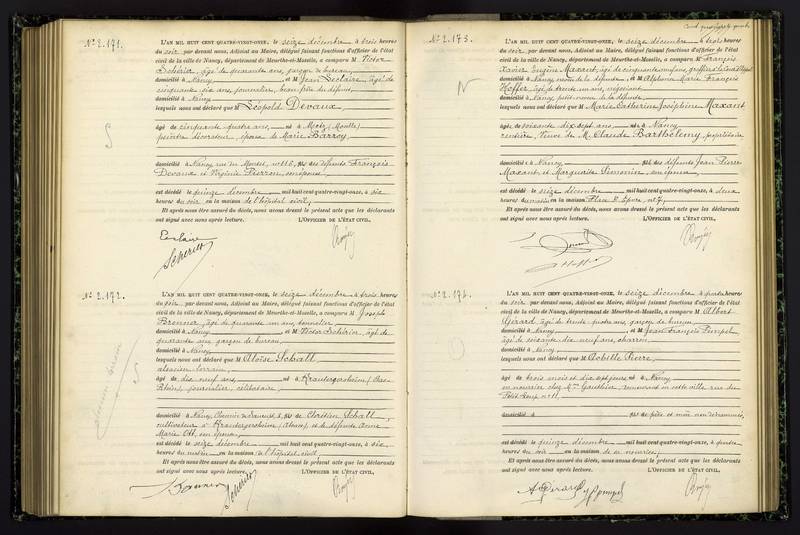 N° 2.171.
L'AN MIL HUIT CENT QUATRE-VINGT-ONZE, le seize décembre à trois heures
du soir par devant nous, Adjoint au Maire, délégué faisant fonctions d'officier de l'état
civil de la ville de Nancy, département de Meurthe-et-Moselle, a comparu M. Victor
Schérier, âgé de quarante ans, garçon de bureau,
domicilié à Nancy et M. Jean Leclaire, âgé de
cinquante six ans, journalier, beau frère du défunt,
domicilié à Nancy
lesquels nous ont déclaré que M. Léopold Devaux,
âgé de cinquante quatre ans, né à Metz (Moselle)
peintre décorateur, époux de Marie Barroy,
domicilié à Nancy rue du Montet, n° 116, fils des défunts François
Devaux et Virginie Pierron, son épouse,
est décédé le quinze décembre mil huit cent quatre-vingt-onze, à six
heures du soir en la maison de l'hôpital civil,
Et après nous être assuré du décès, nous avons dressé le présent acte que les déclarants
ont signé avec nous après lecture. L'OFFICIER DE L'ÉTAT CIVIL,
N° 2.172.
L'AN MIL HUIT CENT QUATRE-VINGT-ONZE, le seize décembre à trois heures
du soir par devant nous, Adjoint au Maire, délégué faisant fonctions d'officier de l'état
civil de la ville de Nancy, département de Meurthe-et-Moselle, a comparu M. Joseph
Brenner, âgé de quarante un ans, tonnelier
domicilié à Nancy et M. Victor Schérier, âgé de
quarante ans garçon de bureau,
domicilié à Nancy
lesquels nous ont déclaré que M. Aloïse Schall,
alsacien lorrain,
âgé de dix neuf ans, né à Krautergersheim (Bas
Rhin), journalier, célibataire,
domicilié à Nancy, fils de Chrétien Schall,
cultivateur à Krautergersheim (Alsace), et de défunte Anne
Marie Ott, son épouse,
est décédé le seize décembre mil huit cent quatre-vingt-onze, à six
heures du matin en la maison de l'hôpital civil,
Et après nous être assuré du décès, nous avons dressé le présent acte que les déclarants
ont signé avec nous après lecture. L'OFFICIER DE L'ÉTAT CIVIL,
N° 2.173.
L'AN MIL HUIT CENT QUATRE-VINGT-ONZE, le seize décembre à trois heures
du soir par devant nous, Adjoint au Maire, délégué faisant fonctions d'officier de l'état
civil de la ville de Nancy, département de Meurthe-et-Moselle, a comparu M. François
Xavier Eugène Maxant, âgé de cinquante
domicilié à Nancy, neveu de la défunte et M. Alphonse Marie François
Hoffer, âgé de trente un ans, négociant
domicilié à Nancy, petit neveu de la défunte
lesquels nous ont déclaré que M. Marie Catherine Joséphine Maxant
âgée de soixante dix sept ans née à Nancy
rentière, Veuve de M. Claude Barthélemy, propriétaire
domicilié à Nancy fille des défunts Jean Pierre
Maxant, et Marguerite Simonin, son épouse
est décédé le seize décembre mil huit cent quatre-vingt-onze, à deux
heures du matin en la maison Place St Epvre, n° 7,
Et après nous être assuré du décès, nous avons dressé le présent acte que les déclarants
ont signé avec nous après lecture. L'OFFICIER DE L'ÉTAT CIVIL,
N° 2.174.
L'AN MIL HUIT CENT QUATRE-VINGT-ONZE, le seize décembre à quatre heures
du soir par devant nous, Adjoint au Maire, délégué faisant fonctions d'officier de l'état
civil de la ville de Nancy, département de Meurthe-et-Moselle, a comparu M. Albert
Gérard, âgé de trente quatre ans, garçon de bureau
domicilié à Nancy et M. Jean François Pimpel
âgé de soixante dix neuf ans, charron
domicilié à Nancy
lesquels nous ont déclaré que M. Achille Pierre,
âgé de trois mois et dix sept jours né à Nancy
en nourrice chez Mme Gauthier, demeurant en cette ville rue du
Petit n° 11,
domicilié à fils de père et mère non dénommés,
est décédé le quinze décembre mil huit cent quatre-vingt-onze, à quatre
heures du soir en la maison de sa nourrice,
Et après nous être assuré du décès, nous avons dressé le présent acte que les déclarants
ont signé avec nous après lecture. L'OFFICIER DE L'ÉTAT CIVIL,